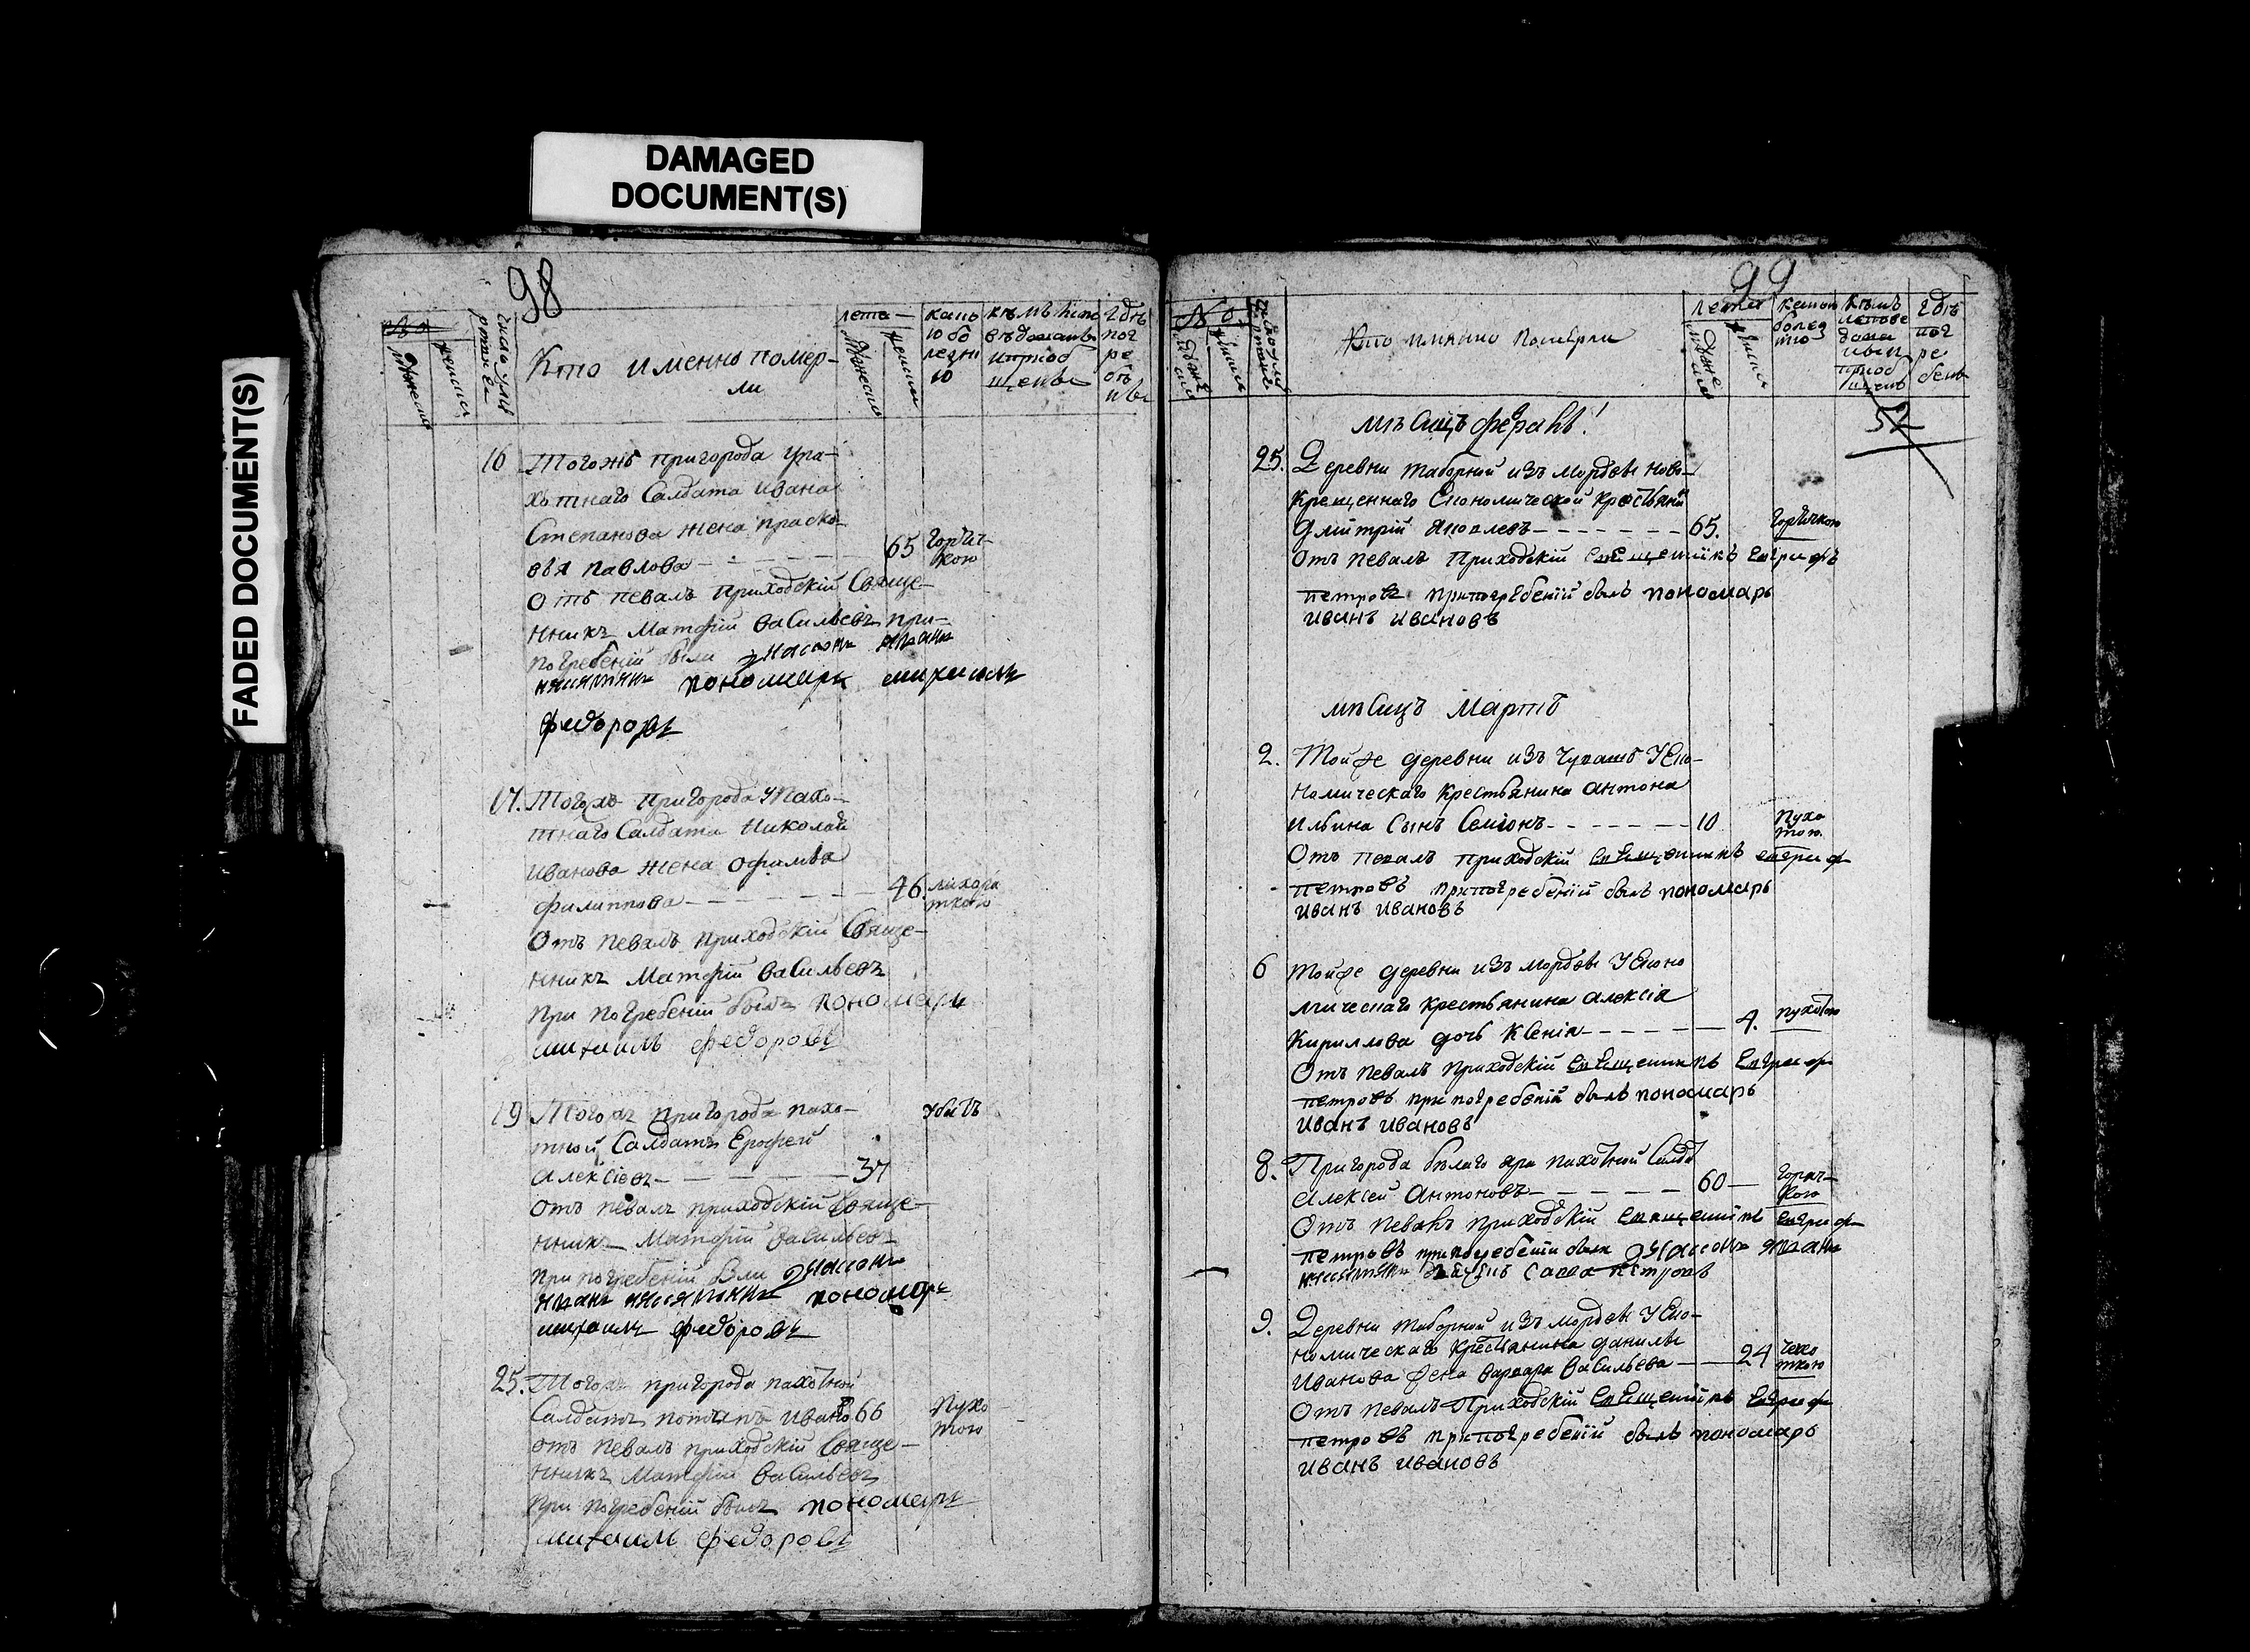 DAMAGED
DOCUMENT(S)
FADED DOCUMENT(S)
98
№
мужеска
женска
число умер
лета
мужеска
женска
какою болезнию
Где погребены
Кто именно помер-
ли
16 Тогожъ пригорода
Салдата Ивана
Степанова жена Праско-
вья Павлова — 65 горяч-
кою
Отъ певалъ приходскій Свяще-
нникъ Матфій Васильевъ при
погребеніи были
пономарь михаилъ
федоровъ
17. Тогожъ пригорода Пахо-
тнаго Салдата Николая
Иванова жена Офимья
Филиппова — 46. лихора
ткою
Отъ певалъ приходскій Свяще-
нникъ Матфій Васильевъ
При погребеніи былъ пономарь
михаилъ федоровъ
19 Тогожъ пригорода пахо- убитъ
тной Салдатъ Ерофей
Алексіевъ — 37
Отъ певалъ приходскій Свяще-
нникъ Матфій Васильевъ
При погребеніи
пономарь
михаилъ федоровъ
25. Тогожъ пригорода пахотной
Салдатъ Потапъ Ивановъ 66 Пухо
тою
отъ певалъ приходскій Свяще-
нникъ Матфій Васильевъ
При погребеніи былъ пономарь
михаилъ федоровъ
99
№
лета
Где погребены
Кто имянно Померли
52
мѣсицъ февраль
25. Деревни Таборной изъ мордвы ново-
крещеннаго Економической крестьянинъ
Дмитрій Яковлевъ — 65. горячкою
Отъ певалъ Приходскій священникъ Евграфъ
петровъ при погребеніи былъ пономарь
иванъ ивановъ
мѣсицъ Мартъ
2. Тойже деревни изъ Чувашъ Еко-
номическаго крестьянина антона
ильина Сынъ Семіонъ — 10 Пухо
тою.
Отъ певалъ приходскій священникъ евграф
петровъ при погребеніи былъ пономарь
иванъ ивановъ
6 Тойже деревни изъ мордвы Еконо
мическаго крестьянина Алексія
Кириллова дочь Ксенія — 4. пухотою
Отъ певалъ приходскій священникъ Евграф
петровъ при погребеніи былъ пономарь
иванъ ивановъ
8. Пригорода белаго яра пахотной Салда
Алексей Антоновъ — 60 — горяч-
кою
Отъ певалъ приходскій священникъ евграф
петровъ при погребеніи были
Савва петровъ
9. Деревни Таборной изъ мордвы Еко-
номическаго крестьянина данилы
Иванова жена варвара Васильева — 24 чехо
ткою
Отъ певалъ Приходскій священникъ Евграф
петровъ при погребеніи былъ пономарь
иванъ ивановъ